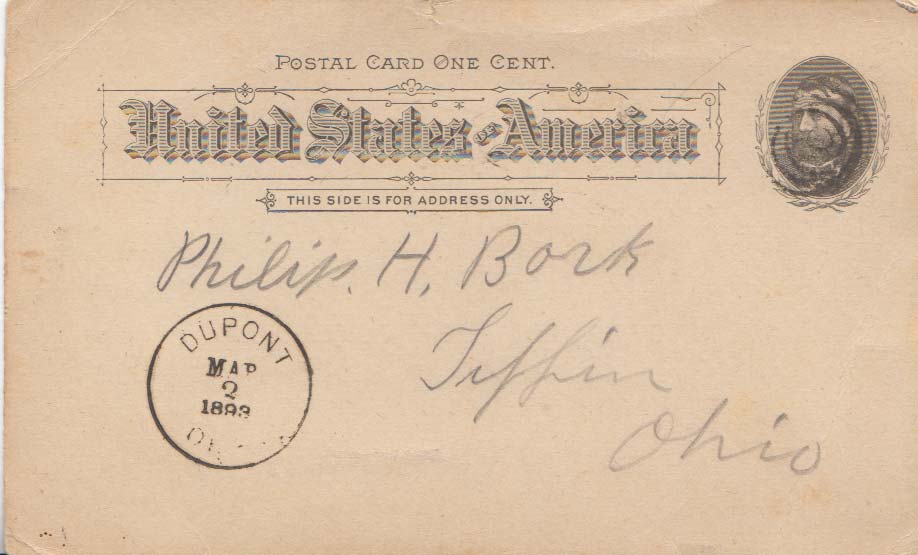 POSTAL CARD ONE CENT.
United States of America
THIS SIDE IS FOR ADDRESS ONLY.
Philip. H. Bork
DUPONT
MAR
2
1893
Tiffin
Ohio